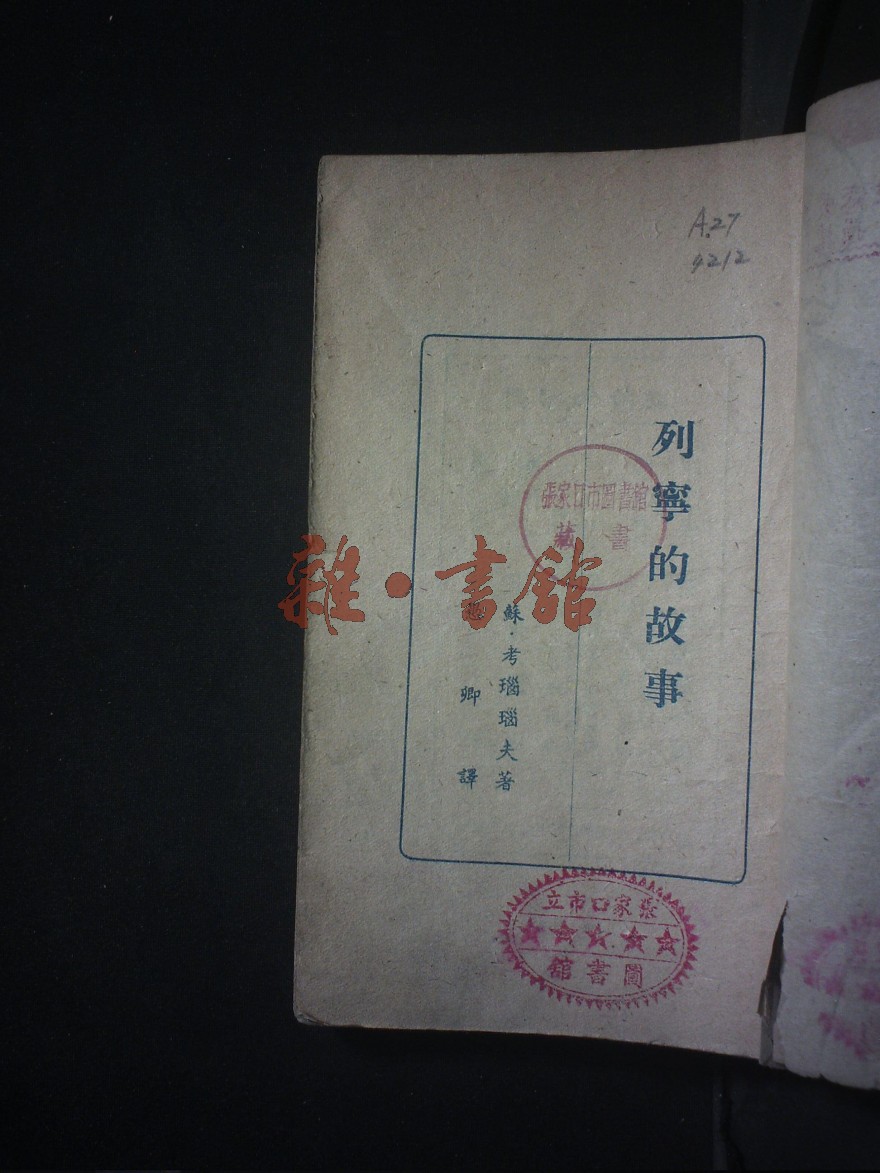 A.27
4212
列寧的故事
蘇·考瑙瑙夫著
卿譯
張家口市圖書館
藏書
張家口市立
圖書館
雜·書館